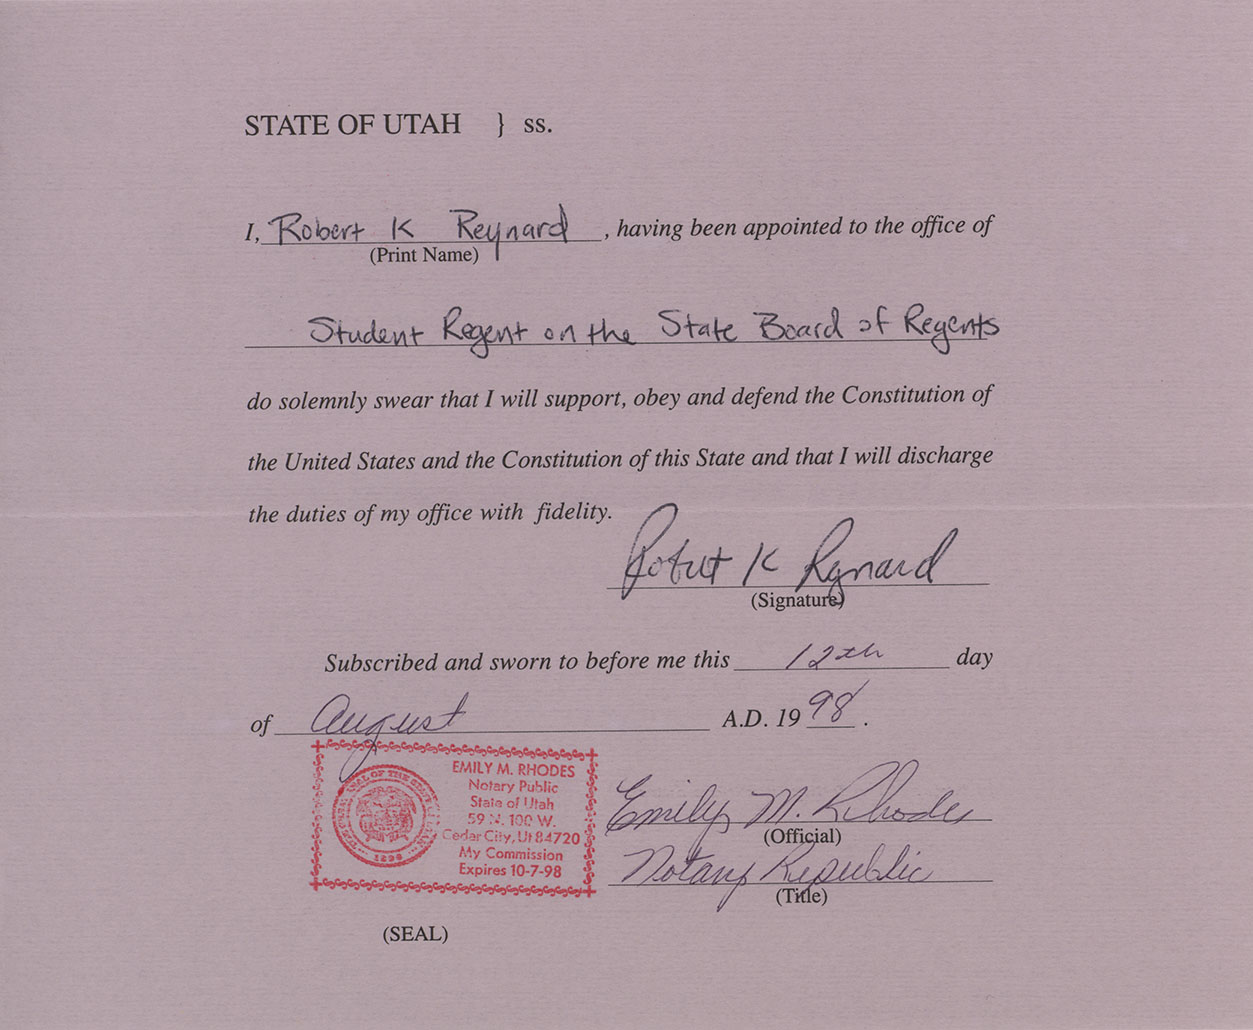 STATE OF UTAH } ss.
I, Robert K Reynard, having been appointed to the office of
(Print Name)
Student Regent on the State Board of Regents
do solemnly swear that I will support, obey and defend the Constitution of
the United States and the Constitution of this State and that I will discharge
the duties of my office with fidelity.
Robert K Reynard
(Signature)
Subscribed and sworn to before me this 12th day
of August A.D. 1998.
EMILY M. RHODES
Notary Public
State of Utah
59 N. 100 W.
Cedar City, Ut 84720
My Commission
Expires 10-7-98
THE GREAT SEAL OF THE STATE OF UTAH
1896
Emily M. Rhodes
(Official)
Notary Republic
(Title)
(SEAL)